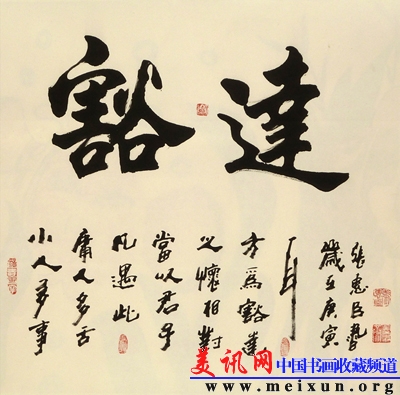 豁達
小人多事
庸人多舌
凡遇此
當以君子
之懷相對
方爲豁達
耳
歲在庚寅
張惠臣書
美讯网 中国书画收藏频道
www.meixun.org